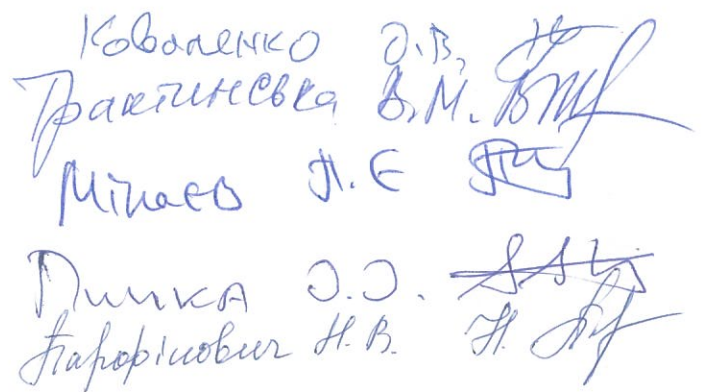 Коваленко О.В.
Трактинська В.М.
Мінаєв П.Є
Пичка О.О.
Парфінович Н.В.